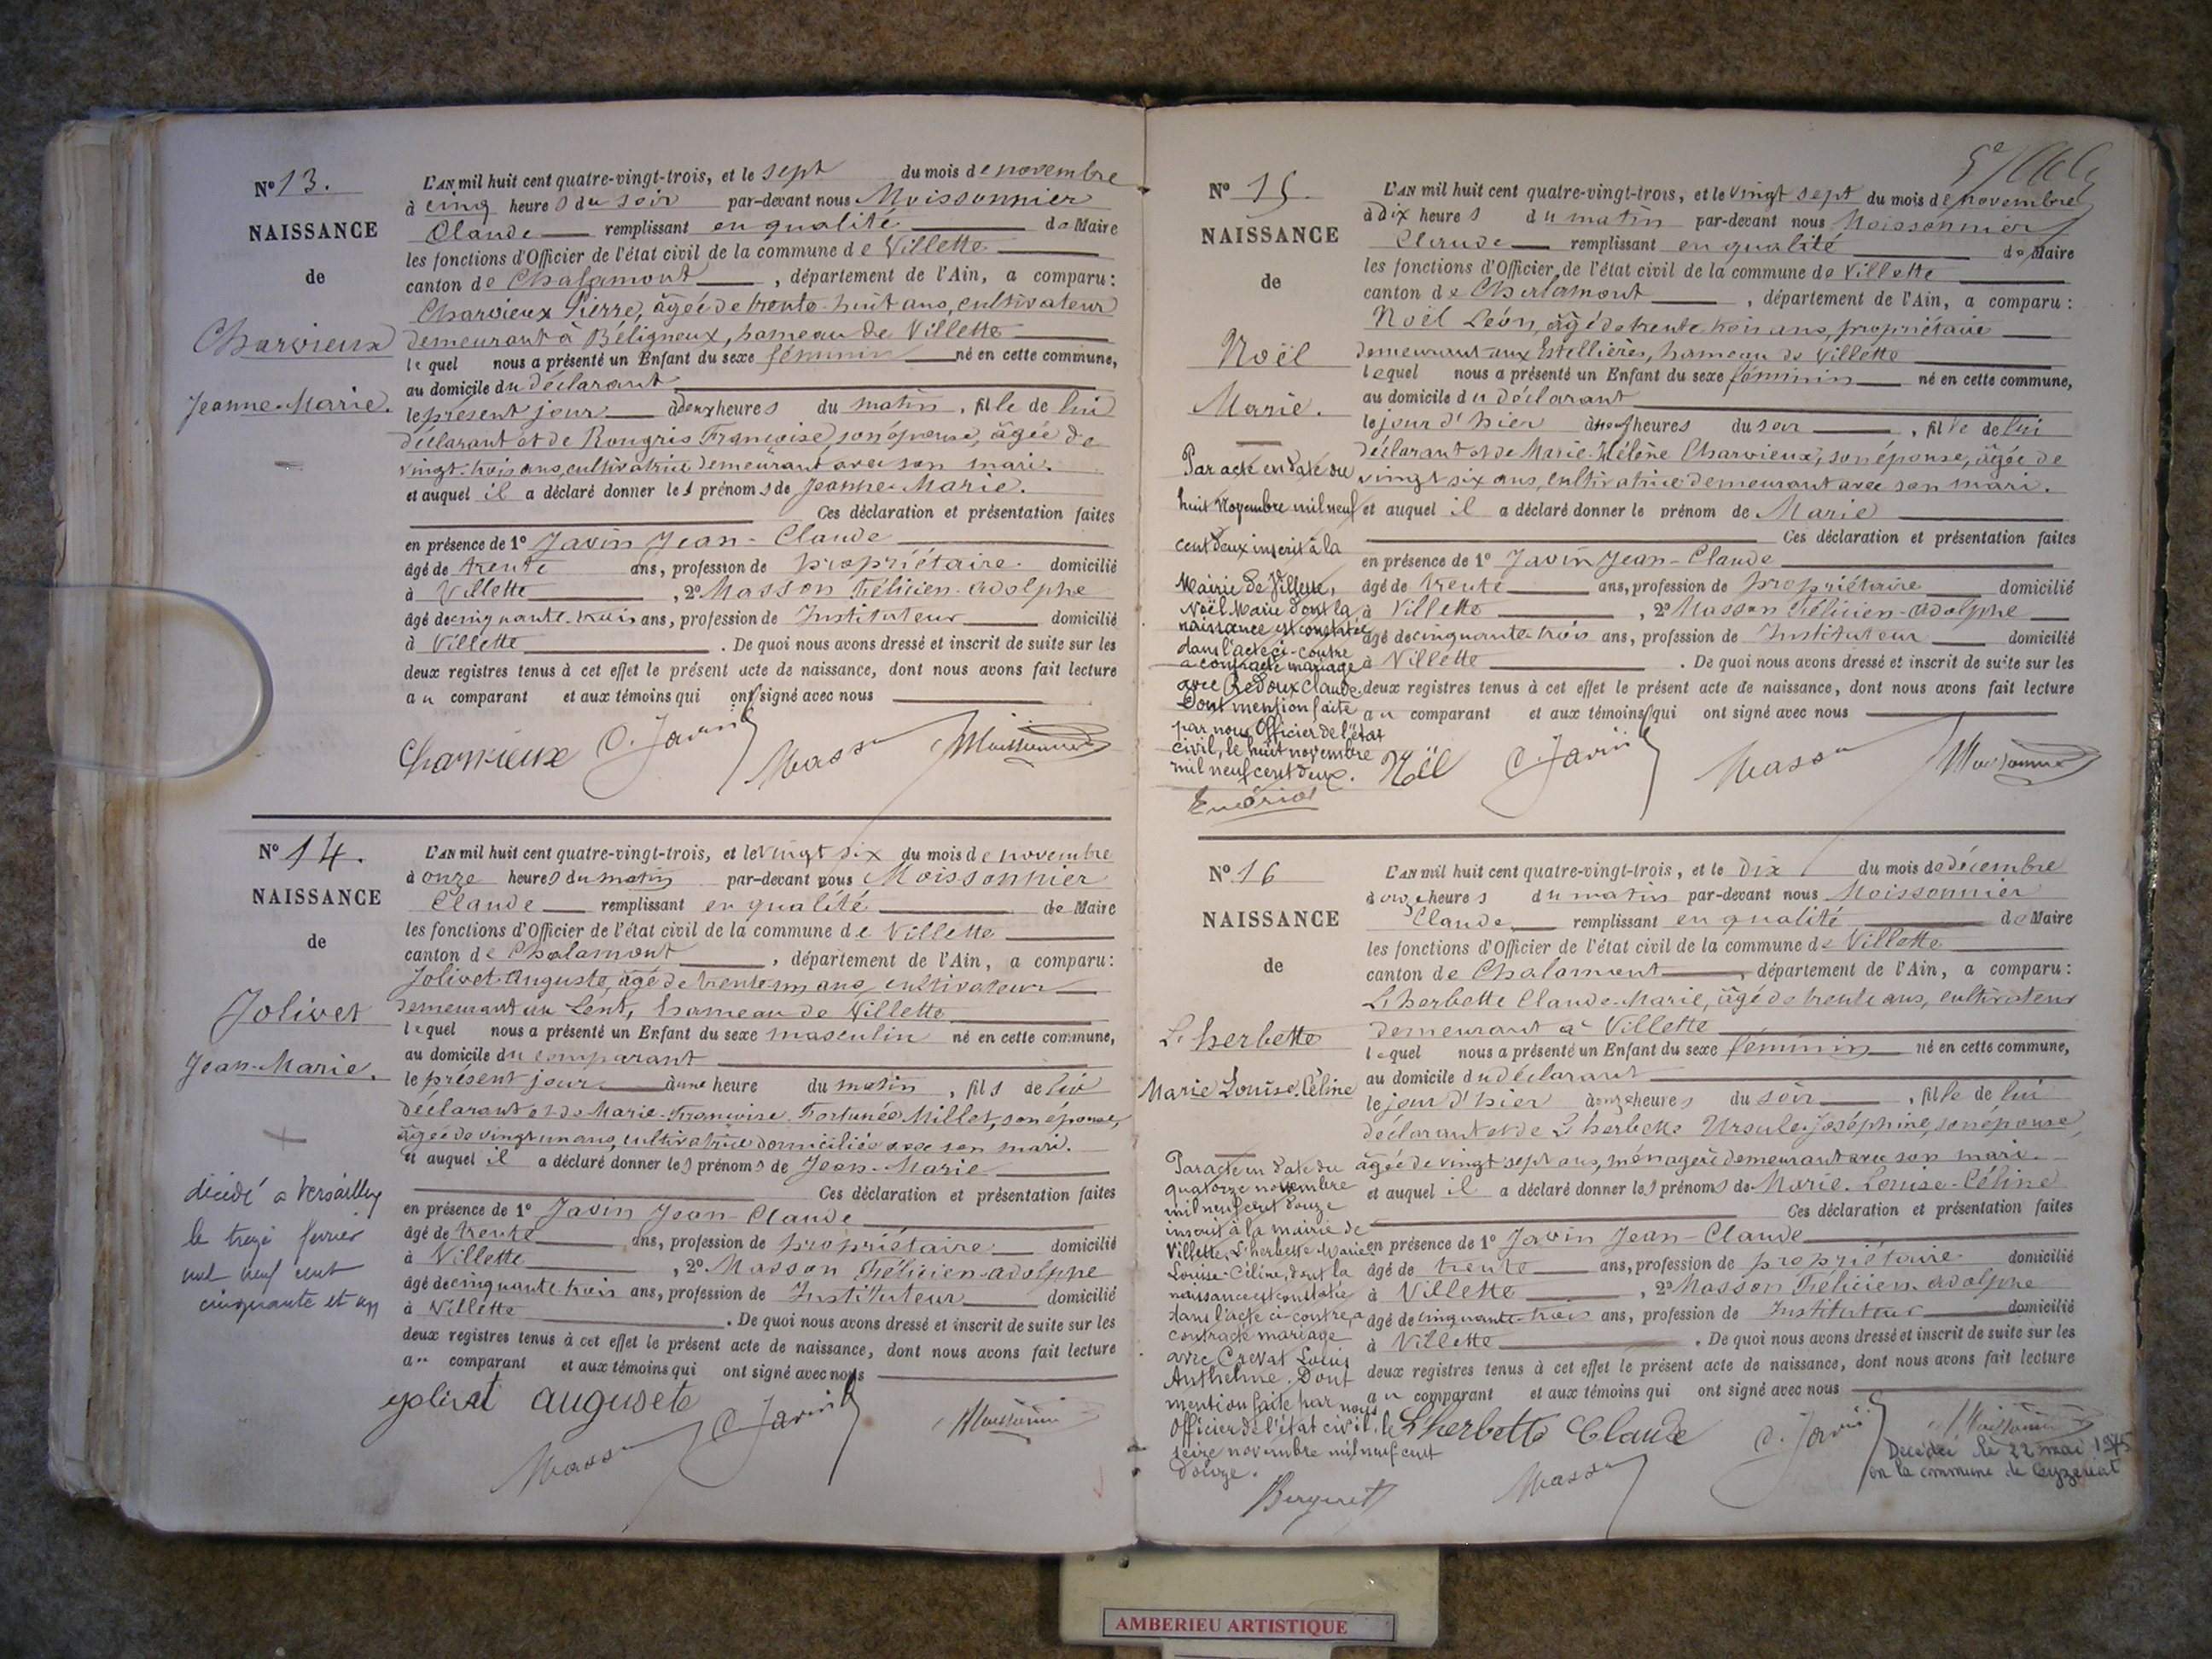 N° 13.
NAISSANCE
de
Charvieux
Jeanne-Marie.
L'AN mil huit cent quatre-vingt-trois, et le sept du mois de novembre
à cinq heures du soir par-devant nous Moissonnier
Claude remplissant en qualité de Maire
les fonctions d'Officier de l'état civil de la commune de Villette
canton de Chalamont, département de l'Ain, a comparu:
Charvieux Pierre, âgée de trente-huit ans, cultivateur
demeurant à Béligneux, hameau de Villette
lequel nous a présenté un Enfant du sexe féminin né en cette commune,
au domicile du déclarant
le présent jour à deux heures du matin, fille de lui
déclarant et de Rongris Françoise, son épouse, âgée de
vingt-trois ans, cultivatrice demeurant avec son mari.
et auquel il a déclaré donner les prénoms de Jeanne-Marie.
Ces déclaration et présentation faites
en présence de 1° Javin Jean-Claude
âgé de trente ans, profession de propriétaire domicilié
à Villette, 2° Masson Félicien-Adolphe
âgé de cinquante-trois ans, profession de Instituteur domicilié
à Villette. De quoi nous avons dressé et inscrit de suite sur les
deux registres tenus à cet effet le présent acte de naissance, dont nous avons fait lecture
au comparant et aux témoins qui ont signé avec nous
Charvieux C. Javin Masson Moissonnier
N° 14.
NAISSANCE
de
Jolivet
Jean-Marie.
décédé à Versailles
le treize fevrier
mil neuf cent
cinquante et un
L'AN mil huit cent quatre-vingt-trois, et le vingt six du mois de novembre
à onze heures du matin par-devant nous Moissonnier
Claude remplissant en qualité de Maire
les fonctions d'Officier de l'état civil de la commune de Villette
canton de Chalamont, département de l'Ain, a comparu:
Jolivet Auguste, âgé de trente un ans, cultivateur
demeurant au Lent, hameau de Villette
lequel nous a présenté un Enfant du sexe masculin né en cette commune,
au domicile du comparant
le présent jour à une heure du matin, fils de lui
déclarant et de Marie-Françoise Fortunée Millet, son épouse,
âgée de vingt un ans, cultivatrice domiciliée avec son mari.
et auquel il a déclaré donner les prénoms de Jean-Marie
Ces déclaration et présentation faites
en présence de 1° Javin Jean-Claude
âgé de trente ans, profession de propriétaire domicilié
à Villette, 2° Masson Félicien-Adolphe
âgé de cinquante trois ans, profession de Instituteur domicilié
à Villette. De quoi nous avons dressé et inscrit de suite sur les
deux registres tenus à cet effet le présent acte de naissance, dont nous avons fait lecture
au comparant et aux témoins qui ont signé avec nous
Jolivet auguste C. Javin Moissonnier
Masson
N° 15.
NAISSANCE
de
Noël
Marie.
Par acte en date du
huit Novembre mil neuf
cent deux inscrit à la
Mairie de Villette,
Noël Marie dont la
naissance est constatée
dans l'acte ci-contre
a contracté mariage
avec Redoux Claude
Dont mention faite
par nous Officier de l'état
civil, le huit novembre
mil neuf cent deux.
L'AN mil huit cent quatre-vingt-trois, et le vingt sept du mois de novembre
à dix heures du matin par-devant nous Moissonnier
Claude remplissant en qualité de Maire
les fonctions d'Officier de l'état civil de la commune de Villette
canton de Chalamont, département de l'Ain, a comparu:
Noël Léon, âgé de trente trois ans, propriétaire
demeurant aux Estellières, hameau de Villette
lequel nous a présenté un Enfant du sexe féminin né en cette commune,
au domicile du déclarant
le jour d'hier à neuf heures du soir, fille de lui
déclarant et de Marie-Hélène Charvieux, son épouse, âgée de
vingt six ans, cultivatrice demeurant avec son mari.
et auquel il a déclaré donner le prénom de Marie
Ces déclaration et présentation faites
en présence de 1° Javin Jean-Claude
âgé de trente ans, profession de propriétaire domicilié
à Villette, 2° Masson Félicien-Adolphe
âgé de cinquante-trois ans, profession de Instituteur domicilié
à Villette. De quoi nous avons dressé et inscrit de suite sur les
deux registres tenus à cet effet le présent acte de naissance, dont nous avons fait lecture
au comparant et aux témoins qui ont signé avec nous
Noël C. Javin Masson Moissonnier
N° 16
NAISSANCE
de
Lherbette
Marie Louise-Céline
Par acte en date du
quatorze novembre
mil neuf cent douze
inscrit à la mairie de
Villette, Lherbette Marie
Louise-Céline, dont la
naissance est constatée
dans l'acte ci-contre a
contracté mariage
avec Crevat Louis
Anthelme. Dont
mention faite par nous
Officier de l'état civil, le
seize novembre mil neuf cent
douze.
Bergeret
L'AN mil huit cent quatre-vingt-trois, et le dix du mois de décembre
à onze heures du matin par-devant nous Moissonnier
Claude remplissant en qualité de Maire
les fonctions d'Officier de l'état civil de la commune de Villette
canton de Chalamont, département de l'Ain, a comparu:
Lherbette Claude-Marie, âgé de trente ans, cultivateur
demeurant à Villette
lequel nous a présenté un Enfant du sexe féminin né en cette commune,
au domicile du déclarant
le jour d'hier à onze heures du soir, fille de lui
déclarant et de Lherbette Ursule-Joséphine, son épouse,
âgée de vingt sept ans, ménagère demeurant avec son mari.
et auquel il a déclaré donner les prénoms de Marie-Louise-Céline
Ces déclaration et présentation faites
en présence de 1° Javin Jean-Claude
âgé de trente ans, profession de propriétaire domicilié
à Villette, 2° Masson Félicien-Adolphe
âgé de cinquante-trois ans, profession de Instituteur domicilié
à Villette. De quoi nous avons dressé et inscrit de suite sur les
deux registres tenus à cet effet le présent acte de naissance, dont nous avons fait lecture
au comparant et aux témoins qui ont signé avec nous
Lherbette Claude C. Javin Moissonnier
Masson
Décédée le 22 mai 1975
en la commune de Ceyzériat
AMBERIEU ARTISTIQUE